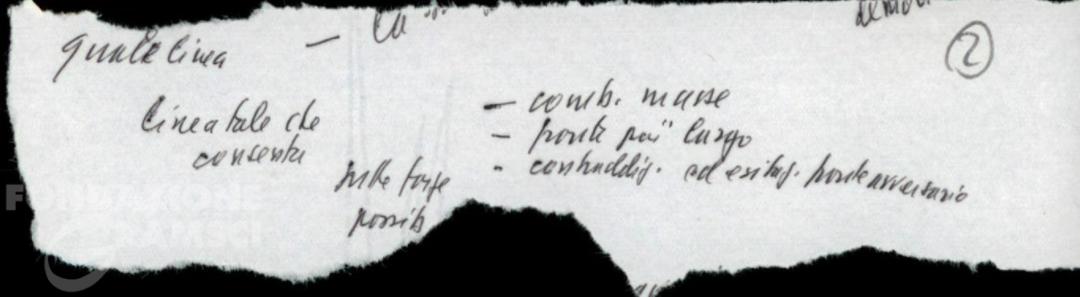 quale linea —
②
linea tale che
consenta
— comb. masse
— fronte più largo
- contraddiz. ed esitaz. fronte avversario
tutte forze
possib
FONDAZIONE
GRAMSCI